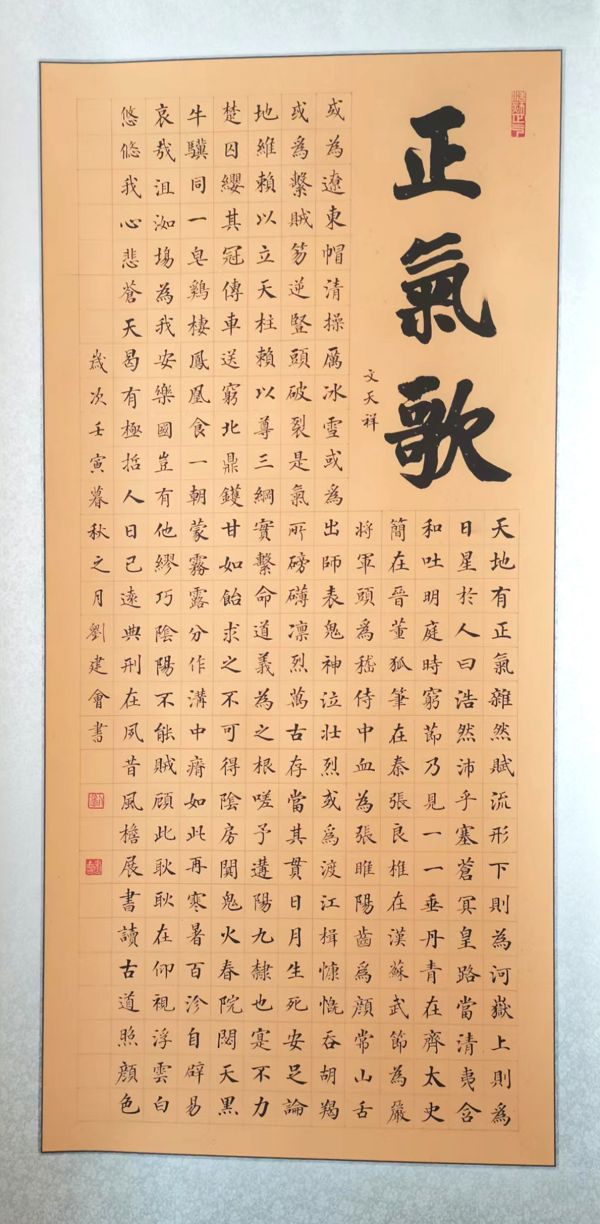 正氣歌
文天祥
天地有正氣雜然賦流形下則為河嶽上則為
日星於人曰浩然沛乎塞蒼冥皇路當清夷含
和吐明庭時窮節乃見一一垂丹青在齊太史
簡在晉董狐筆在秦張良椎在漢蘇武節為嚴
將軍頭為嵇侍中血為張睢陽齒為顏常山舌
或為遼東帽清操厲冰雪或為出師表鬼神泣壯烈或為渡江楫慷慨吞胡羯
或為擊賊笏逆豎頭破裂是氣所磅礴凜烈萬古存當其貫日月生死安足論
地維賴以立天柱賴以尊三綱實繫命道義為之根嗟予遘陽九隸也寔不力
楚囚纓其冠傳車送窮北鼎鑊甘如飴求之不可得陰房闃鬼火春院閟天黑
牛驥同一皂鷄棲鳳凰食一朝蒙霧露分作溝中瘠如此再寒暑百沴自辟易
哀哉沮洳場為我安樂國豈有他繆巧陰陽不能賊顧此耿耿在仰視浮雲白
悠悠我心悲蒼天曷有極哲人日已遠典刑在夙昔風檐展書讀古道照顏色
歲次壬寅暮秋之月劉建會書